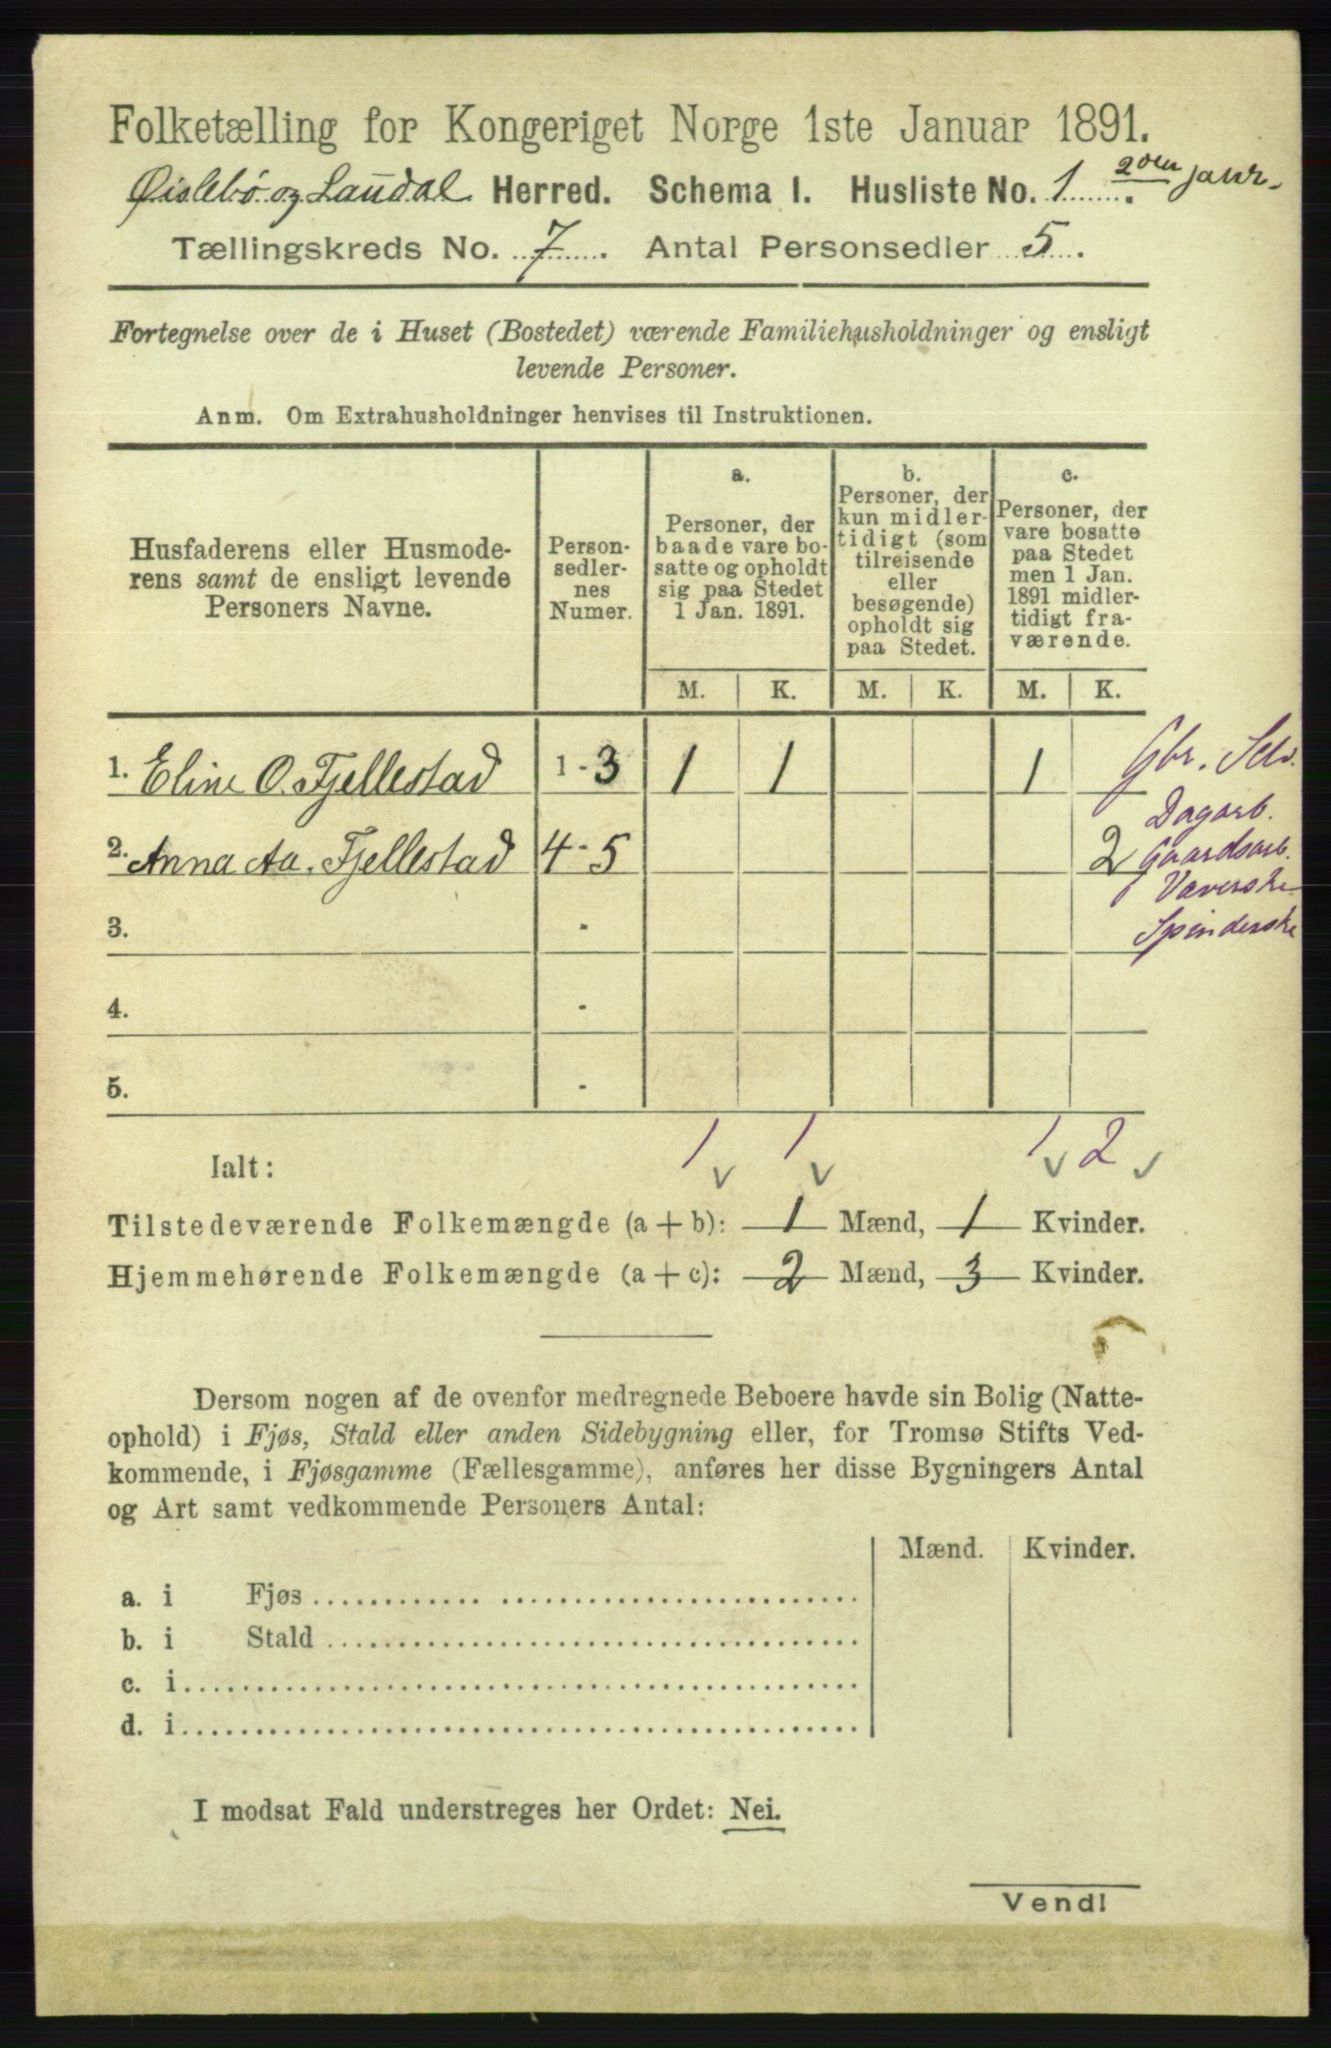 Folketælling for Kongeriget Norge 1ste Januar 1891.
Øislebø og Laudal Herred. Schema I. Husliste No. 1. 2den
Tællingskreds No. 7. Antal Personsedler 5.
Fortegnelse over de i Huset (Bostedet) værende Familiehusholdninger og ensligt
levende Personer.
Anm. Om Extrahusholdninger henvises til Instruktionen.
Husfaderens eller Husmode-
rens samt de ensligt levende
Personers Navne.
Person-
sedler-
nes
Numer.
a.
Personer, der
baade vare bo-
satte og opholdt
sig paa Stedet
1 Jan. 1891.
b.
Personer, der
kun midler-
tidigt (som
tilreisende
eller
besøgende)
opholdt sig
paa Stedet.
c.
Personer, der
vare bosatte
paa Stedet
men 1 Jan.
1891 midler-
tidigt fra-
værende.
M. K. M. K. M. K.
1. Eline O. Fjellestad 1-3 1 1 1 Gbr. Selv.
Dagarb.
2. Anna Aa. Fjellestad 4-5 2 Gaardsarb.
Væverske
3. - Spinderske
4. -
5. -
Ialt: 1 1 1 2
Tilstedeværende Folkemængde (a + b): 1 Mænd, 1 Kvinder.
Hjemmehørende Folkemængde (a + c): 2 Mænd, 3 Kvinder.
Dersom nogen af de ovenfor medregnede Beboere havde sin Bolig (Natte-
ophold) i Fjøs, Stald eller anden Sidebygning eller, for Tromsø Stifts Ved-
kommende, i Fjøsgamme (Fællesgamme), anføres her disse Bygningers Antal
og Art samt vedkommende Personers Antal:
Mænd. Kvinder.
a. i Fjøs
b. i Stald
c. i
d. i
I modsat Fald understreges her Ordet: Nei.
Vend!